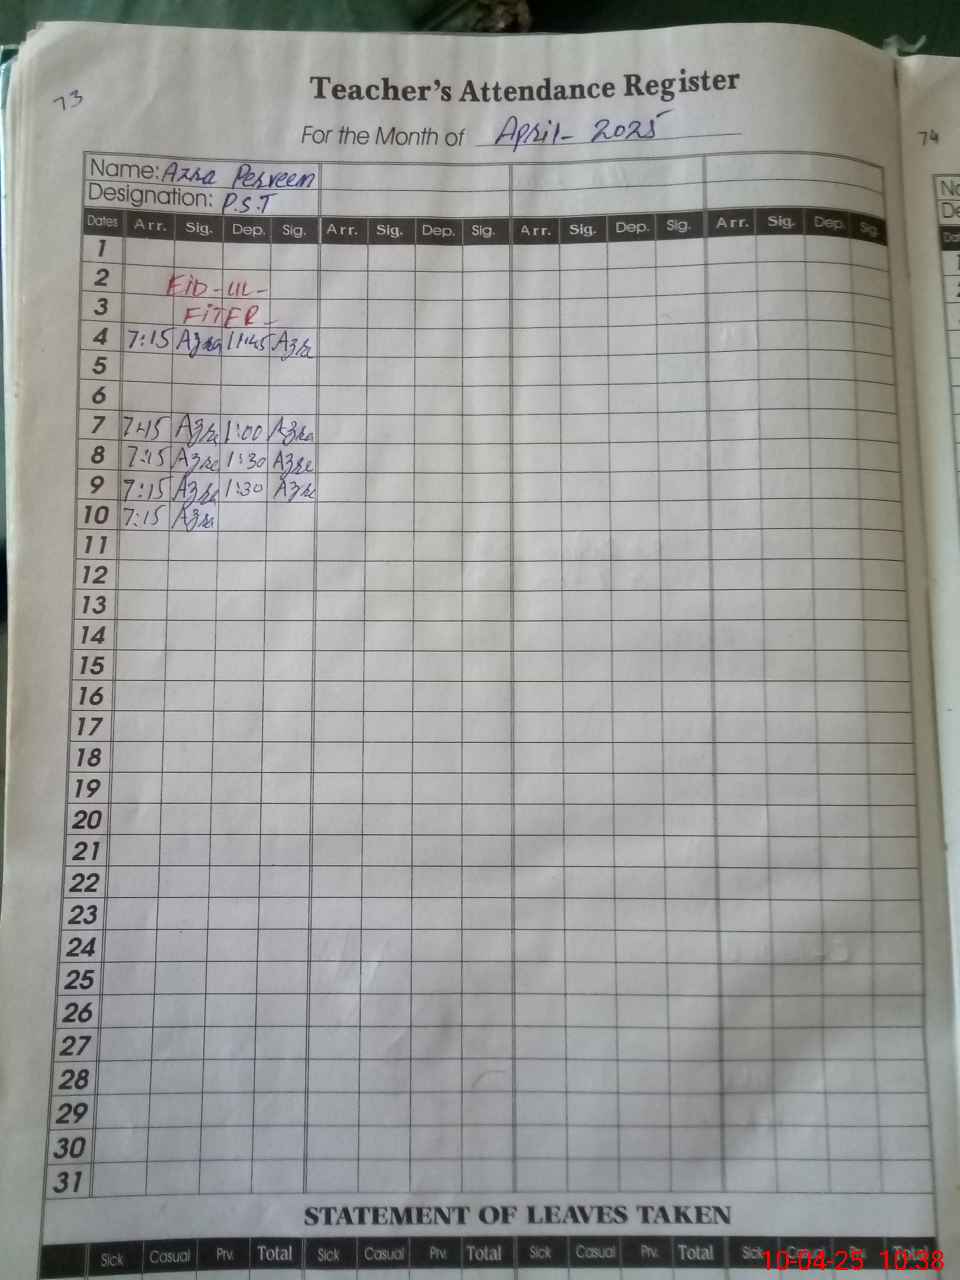 73
Teacher's Attendance Register
For the Month of April - 2025
74
Name: Azra Perveen
Designation: P.S.T
Dates Arr. Sig. Dep. Sig. Arr. Sig. Dep. Sig. Arr. Sig. Dep. Sig. Arr. Sig. Dep. Sig.
1
2 EID-UL-
3 FITFR-
4 7:15 Azra 11:45 Azra
5
6
7 7:15 Azra 1:00 Azra
8 7:15 Azra 1:30 Azra
9 7:15 Azra 1:30 Azra
10 7:15 Azra
11
12
13
14
15
16
17
18
19
20
21
22
23
24
25
26
27
28
29
30
31
STATEMENT OF LEAVES TAKEN
Sick Casual Prv. Total Sick Casual Prv. Total Sick Casual Prv. Total Sick
10-04-25 10:38